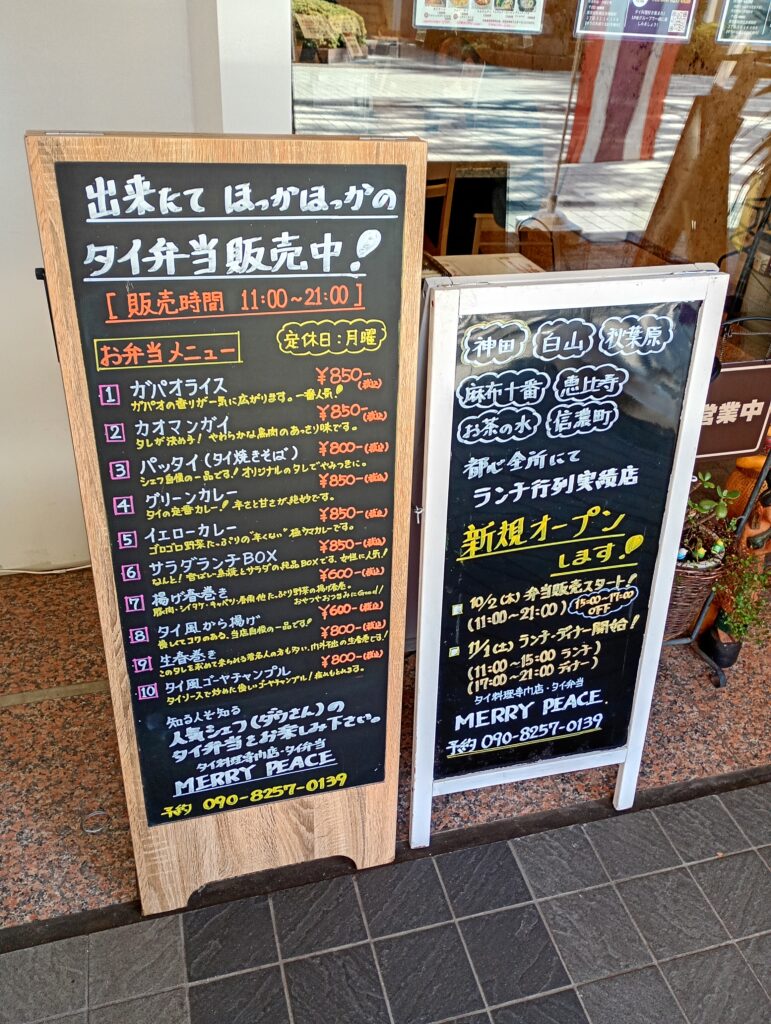 出来たて ほっかほっかの
タイ弁当販売中!
[ 販売時間 11:00～21:00 ]
お弁当メニュー
定休日:月曜
1 ガパオライス ¥850-(税込)
ガパオの香りが一気に広がります。一番人気!
2 カオマンガイ ¥850-(税込)
タレが決め手! やわらかな鳥肉のあっさり味です。
3 パッタイ(タイ焼きそば) ¥800-(税込)
シェフ自慢の一品です!オリジナルのタレでやみつきに。
4 グリーンカレー ¥850-(税込)
タイの定番カレー!辛さと甘さが絶妙です。
5 イエローカレー ¥850-(税込)
ゴロゴロ野菜たっぷりの"辛くない"極ウマカレーです。
6 サラダランチBOX ¥850-(税込)
なんと! 香ばしい鳥焼とサラダの純品BOXです。女性に人気!
7 揚げ春巻き ¥600-(税込)
豚肉・シイタケ・キャベツ・春雨他たっぷり野菜の揚げ春巻。
おやつやおつまみにGood!
8 タイ風から揚げ ¥600-(税込)
優しくてコクのある、当店自慢の一品です!
9 生春巻き ¥800-(税込)
このタレを求めて来られる著名人の方も多い、門外不出の生春巻です!
10 タイ風ゴーヤチャンプル ¥800-(税込)
タイソースで炒めた優しいゴーヤチャンプル!疲れもとれます。
知る人ぞ知る
人気シェフ(ダウさん)の
タイ弁当をお楽しみ下さい。
タイ料理専門店・タイ弁当
MERRY PEACE
予約 090-8257-0139
神田 白山 秋葉原
麻布十番 恵比寿
お茶の水 信濃町
都心全所にて
ランチ行列実績店
新規オープン
します!
10/2(木) 弁当販売スタート!
(11:00～21:00) 15:00-17:00
OFF
11/1(土) ランチ・ディナー開始!
(11:00～15:00 ランチ)
(17:00～21:00 ディナー)
タイ料理専門店・タイ弁当
MERRY PEACE
予約 090-8257-0139
営業中